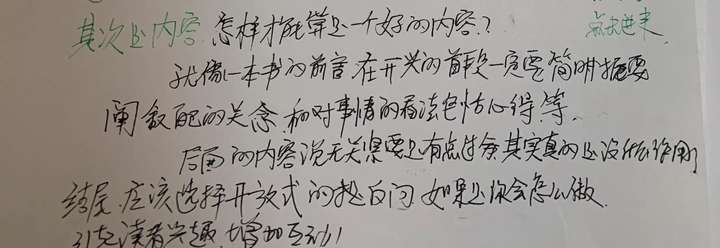 其次是内容 怎样才能算是一个好的内容？
点击进来
就像一本书的前言 在开头的首段一定要简明扼要
阐叙 的关念 和对事情的看法包括心得等.
后面的内容说无关 要是有点过余 其实真的是没什么作用
结尾 应该选择开放式的提反问 如果是你会怎么做.
引起读者兴趣 增加互动！